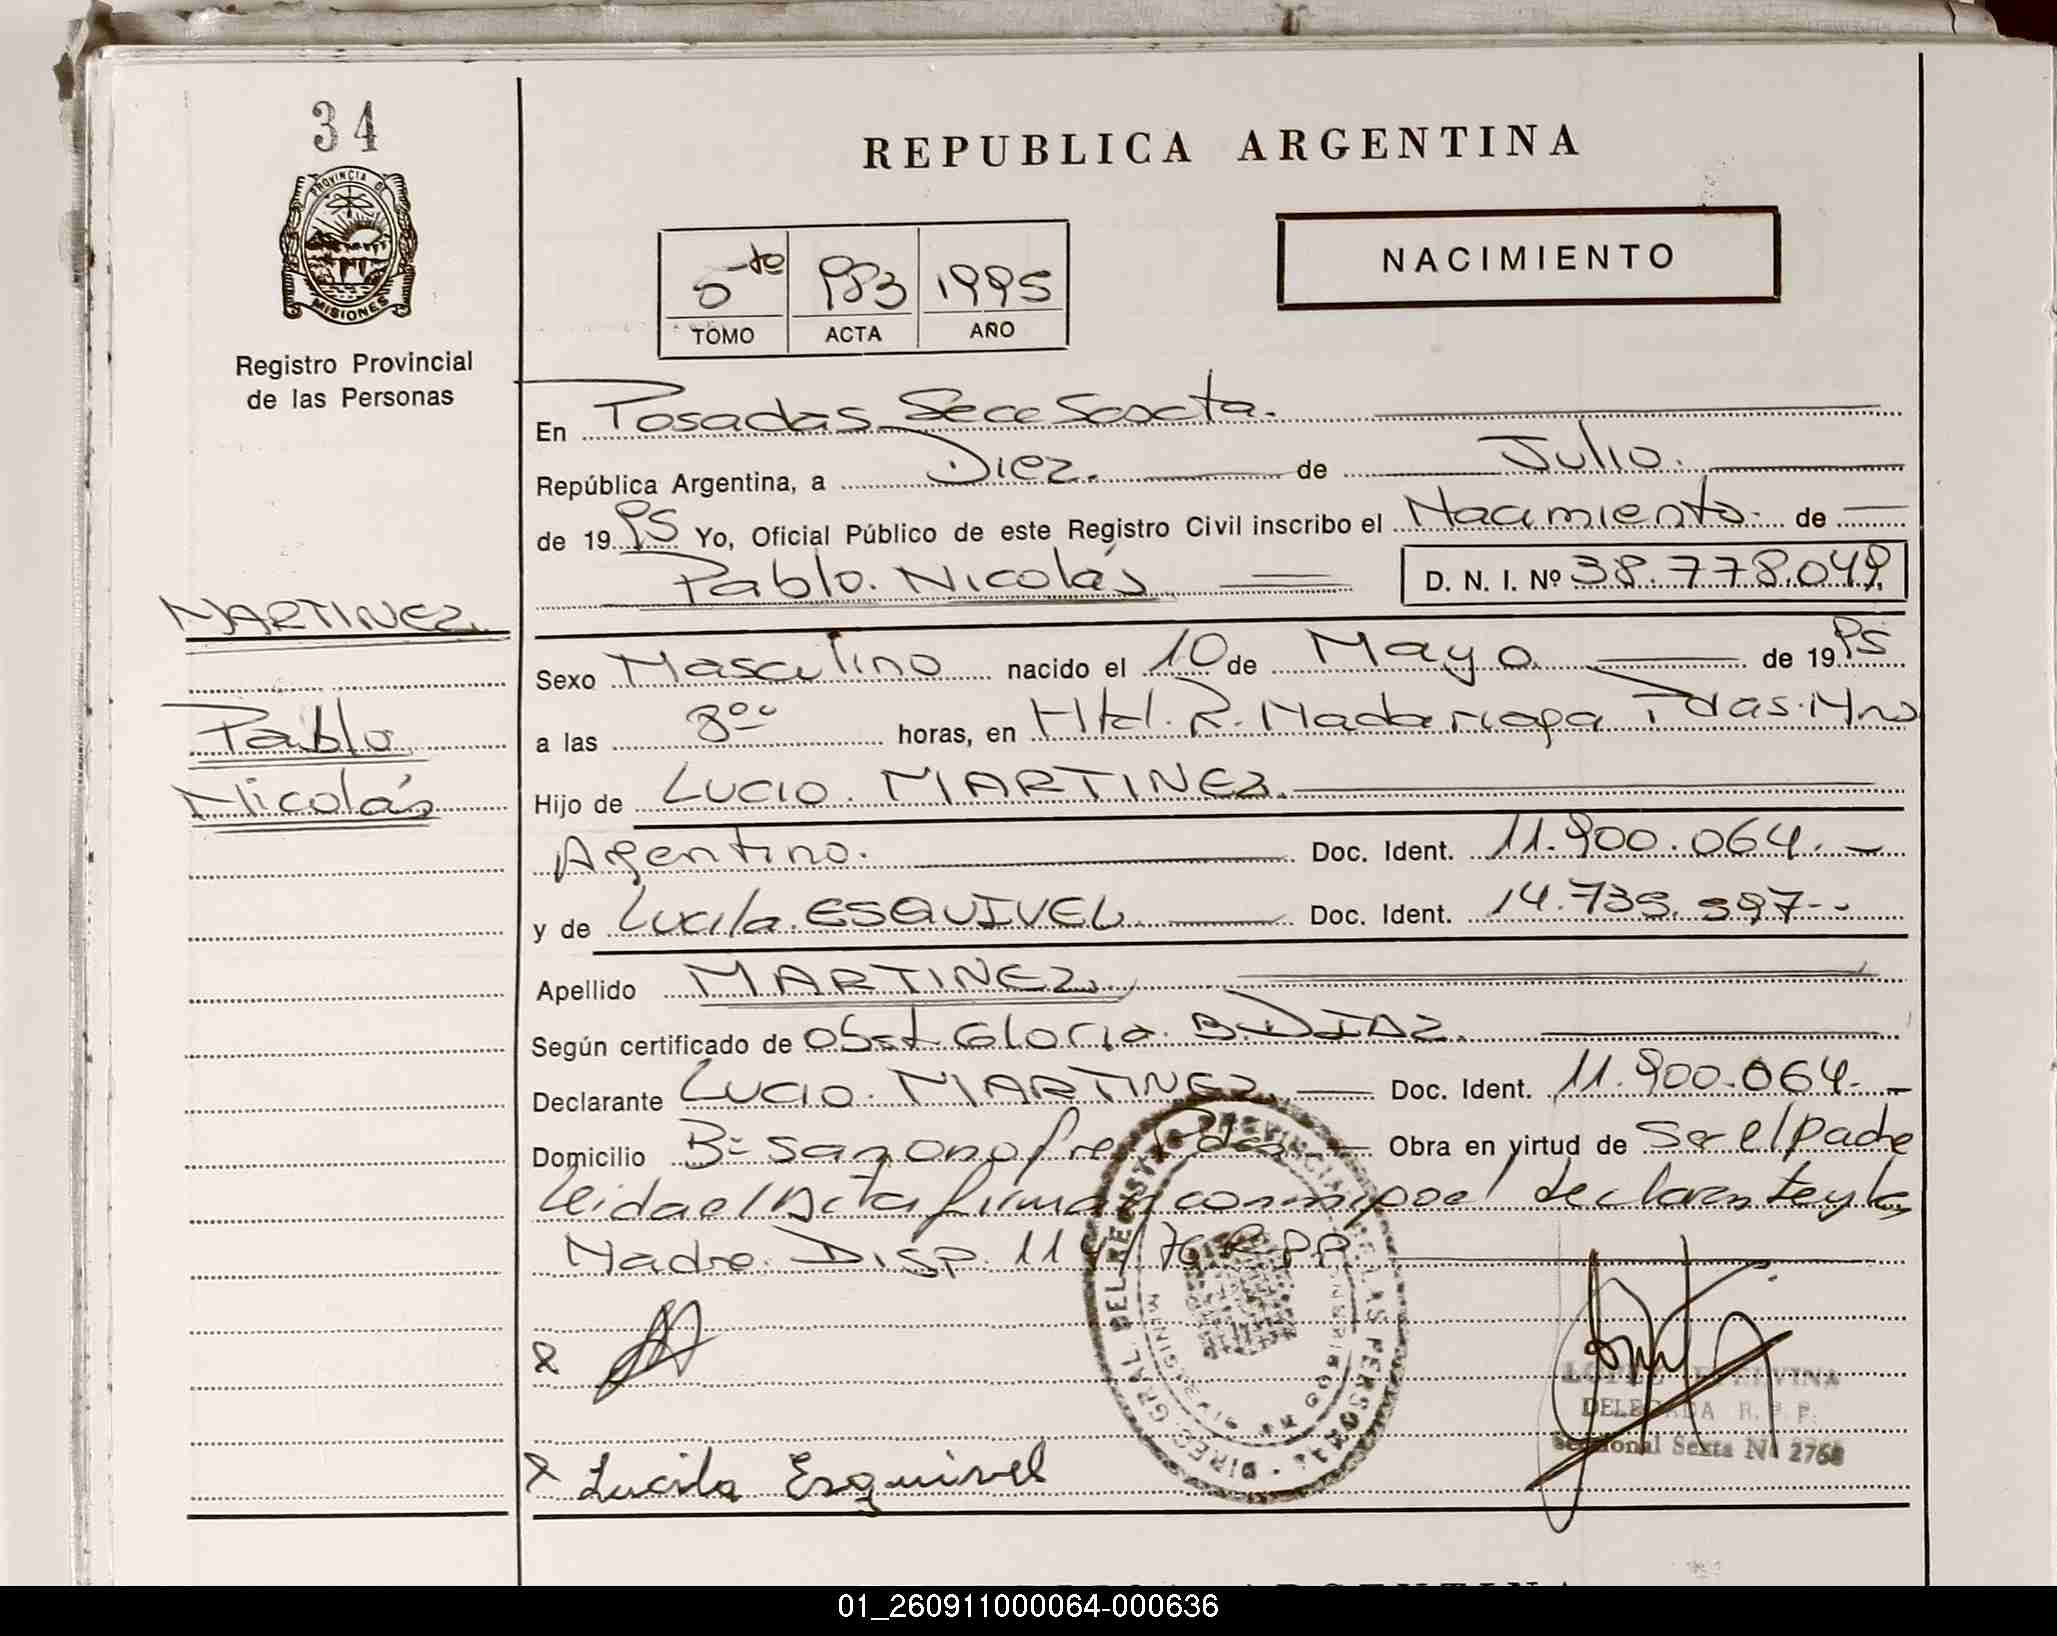 34
PROVINCIA DE
MISIONES
Registro Provincial
de las Personas
REPUBLICA ARGENTINA
NACIMIENTO
5to 983 1995
TOMO ACTA AÑO
En Posadas Secc Sexta.
República Argentina, a Diez. de Julio.
de 1995 Yo, Oficial Público de este Registro Civil inscribo el Nacimiento. de
Pablo. Nicolás D. N. I. Nº 38.778.049
MARTINEZ.
Sexo Masculino nacido el 10 de Mayo de 1995
Pablo
a las 8oo horas, en Htal. R. Madariaga Pdas. Mnes
Nicolás
Hijo de LUCIO. MARTINEZ.
Argentino. Doc. Ident. 11.900.064.
y de Lucila. ESQUIVEL Doc. Ident.
Apellido MARTINEZ.
Según certificado de Obst Gloria. B. DIAZ.
Declarante LUCIO. MARTINEZ Doc. Ident. 11.900.064.
Domicilio Bº San Onofre Pdas Obra en virtud de Ser el Padre
leida el Acta firman conmigo el declarante y la
Madre. DISP. 114/76 R.P.P.
DIREC. GRAL. DEL REGISTRO PROVINCIAL DE LAS PERSONAS
LOPEZ ETELVINA
DELEGADA R. P. P.
Seccional Sexta Nº 2768
Lucila Esquivel
01_260911000064-000636